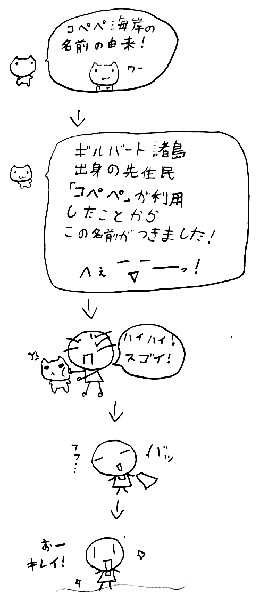 コペペ海岸の
名前の由来！
ワー
ギルバート諸島
出身の先住民
「コペペ」が利用
したことから
この名前がつきました！
へぇーーっ！
ハイハイ！
スゴイ！
バッ
おー
キレイ！